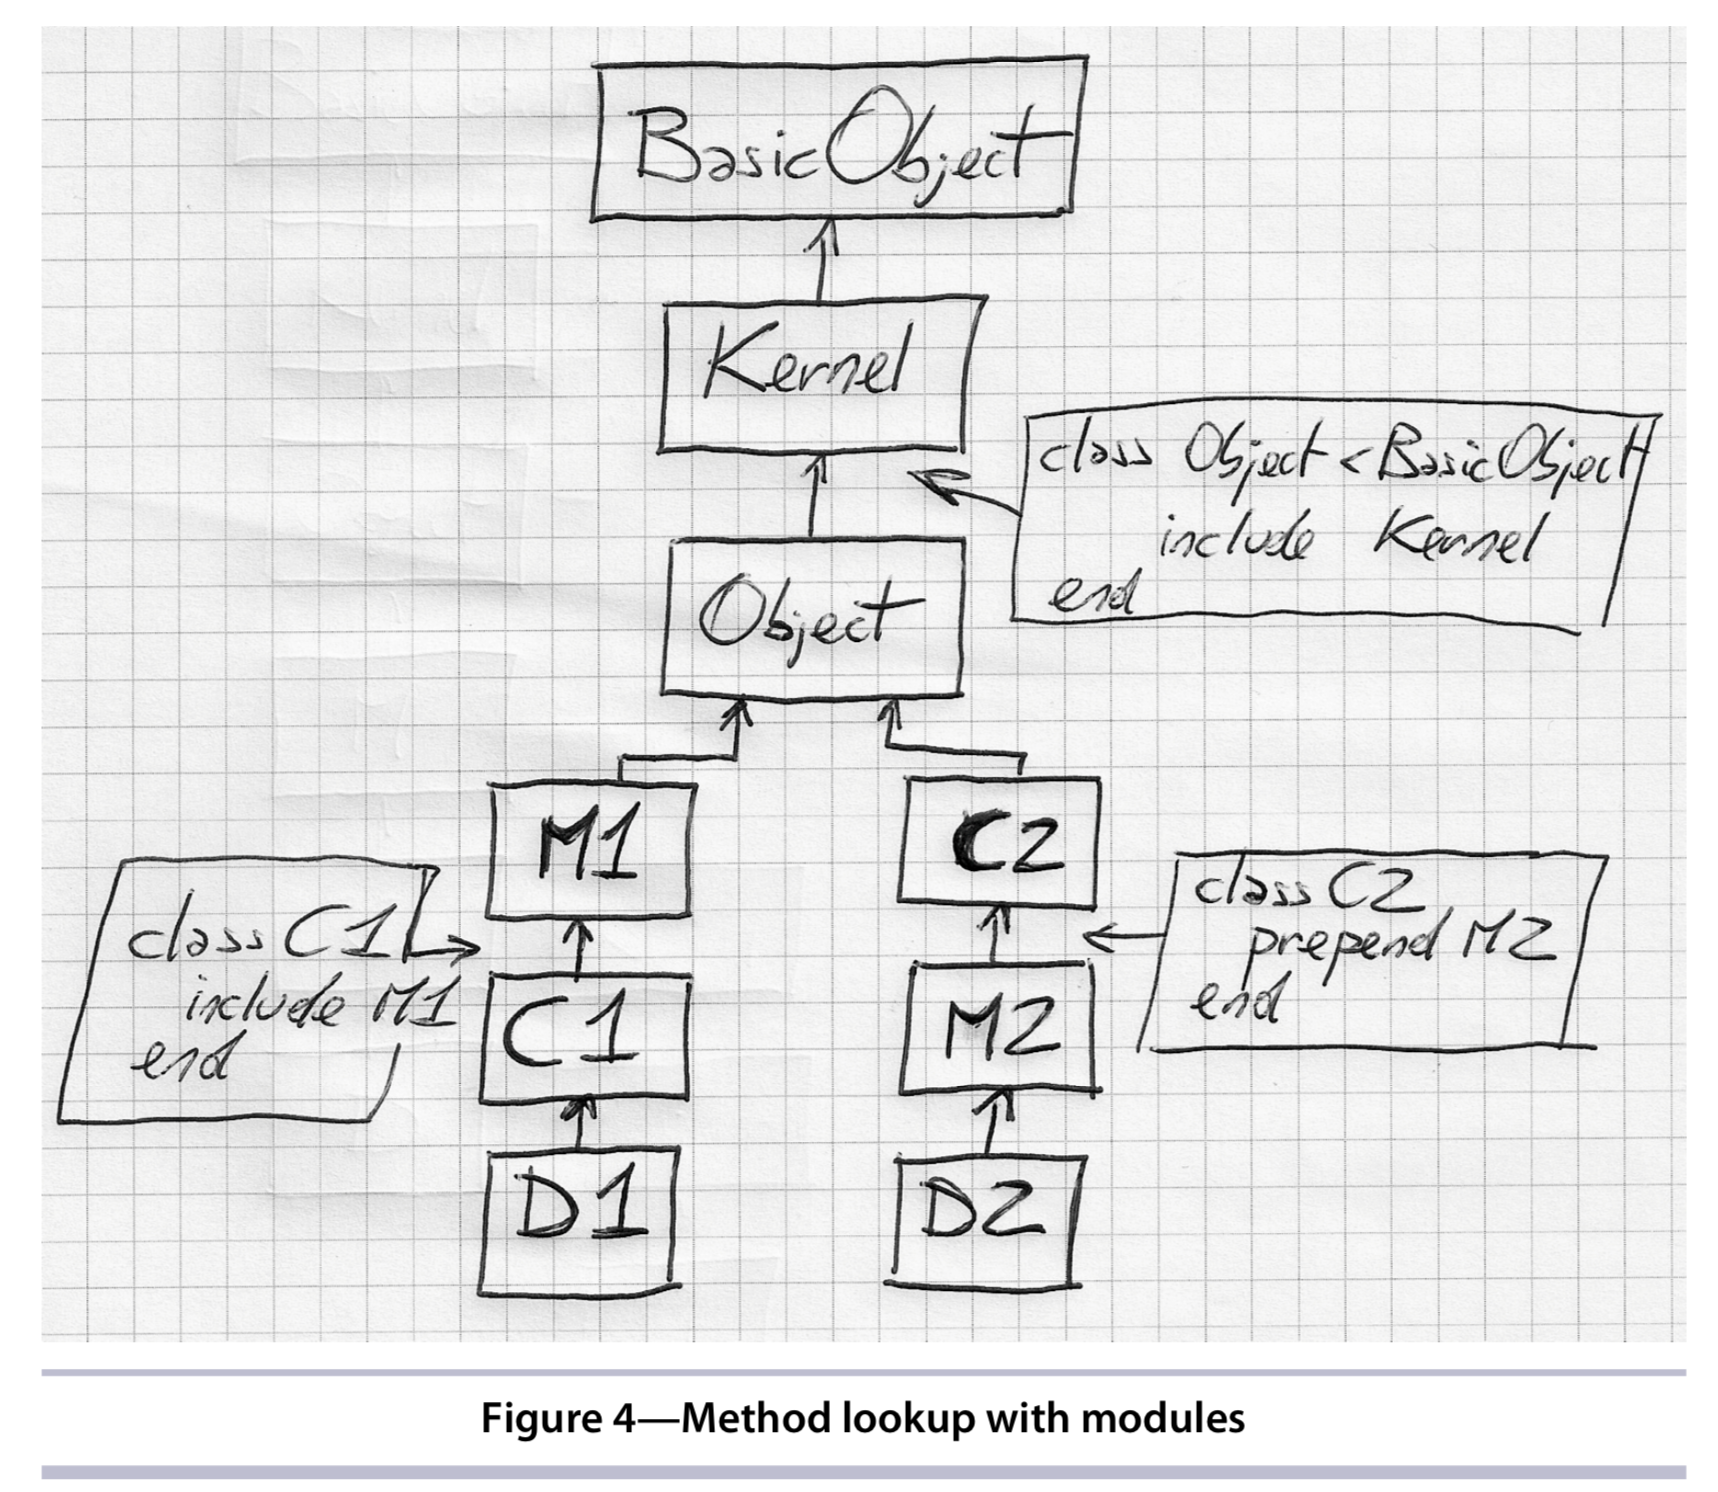 BasicObject
Kernel
class Object < BasicObject
include Kernel
end
Object
M1
C2
class C1
include M1
end
class C2
prepend M2
end
C1
M2
D1
D2
Figure 4—Method lookup with modules